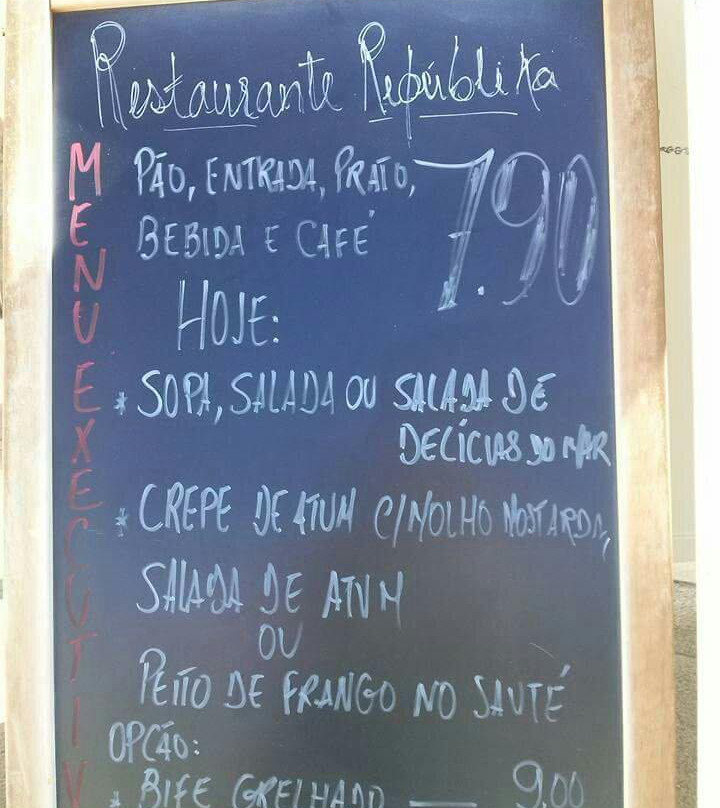 Restaurante Repúblika
MENU EXECUTIV
PÃO, ENTRADA, PRATO,
BEBIDA E CAFÉ
7.90
HOJE:
* SOPA, SALADA OU SALADA DE
DELÍCIAS DO MAR
* CREPE DE ATUM C/MOLHO MOSTARDA,
SALADA DE ATUM
OU
PEITO DE FRANGO NO SAUTÉ
OPCÃO:
* BIFE GRELHADO — 9.00